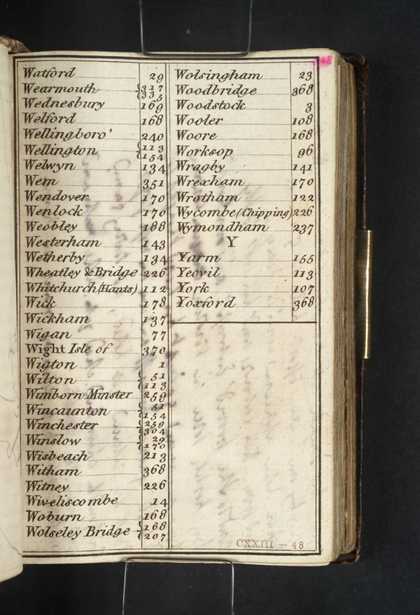 Watford 29
Wearmouth { 317
335
Wednesbury 169
Welford 168
Wellingboro' 240
Wellington { 113
154
Welwyn 134
Wem 351
Wendover 170
Wenlock 170
Weobley 188
Westerham 143
Wetherby 134
Wheatley & Bridge 226
Whitchurch (Hants) 112
Wick 178
Wickham 137
Wigan 77
Wight Isle of 370
Wigton 1
Wilton { 51
113
Wimborn Minster 259
Wincaunton { 51
154
Winchester { 259
304
Winslow { 29
170
Wisbeach 213
Witham 368
Witney 226
Wiveliscombe 14
Woburn 168
Wolseley Bridge { 168
207
Wolsingham 23
Woodbridge 368
Woodstock 3
Wooler 108
Woore 168
Worksop 96
Wragby 141
Wrexham 170
Wrotham 122
Wycombe (Chipping) 226
Wymondham 237
Y
Yarm 155
Yeovil 113
York 107
Yoxford 368
CXXIII - 48